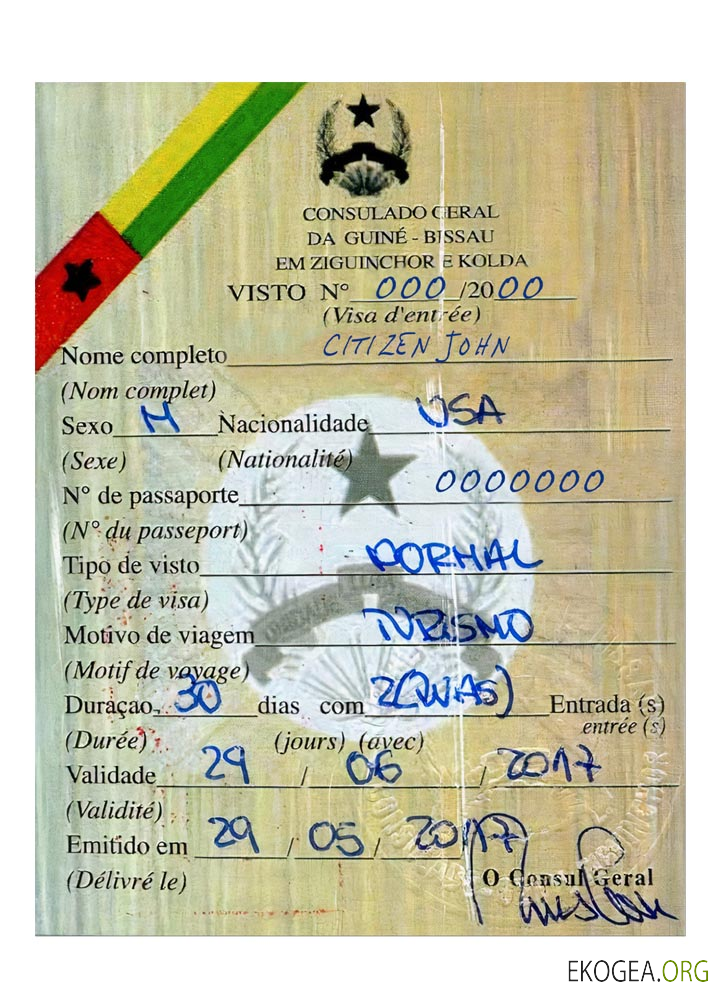 CONSULADO GERAL
DA GUINÉ - BISSAU
EM ZIGUINCHOR E KOLDA
VISTO Nº 000 /2000
(Visa d'entrée)
Nome completo CITIZEN JOHN
(Nom complet)
Sexo M Nacionalidade USA
(Sexe) (Nationalité)
Nº de passaporte 0000000
(Nº du passeport)
Tipo de visto NORMAL
(Type de visa)
Motivo de viagem TURISMO
(Motif de voyage)
Duraçao 30 dias com 2(DUAS) Entrada (s)
entrée (s)
(Durée) (jours) (avec)
Validade 29 / 06 / 2017
(Validité)
Emitido em 29 / 05 / 2017
(Délivré le)
O Consul Geral
EKOGEA.ORG